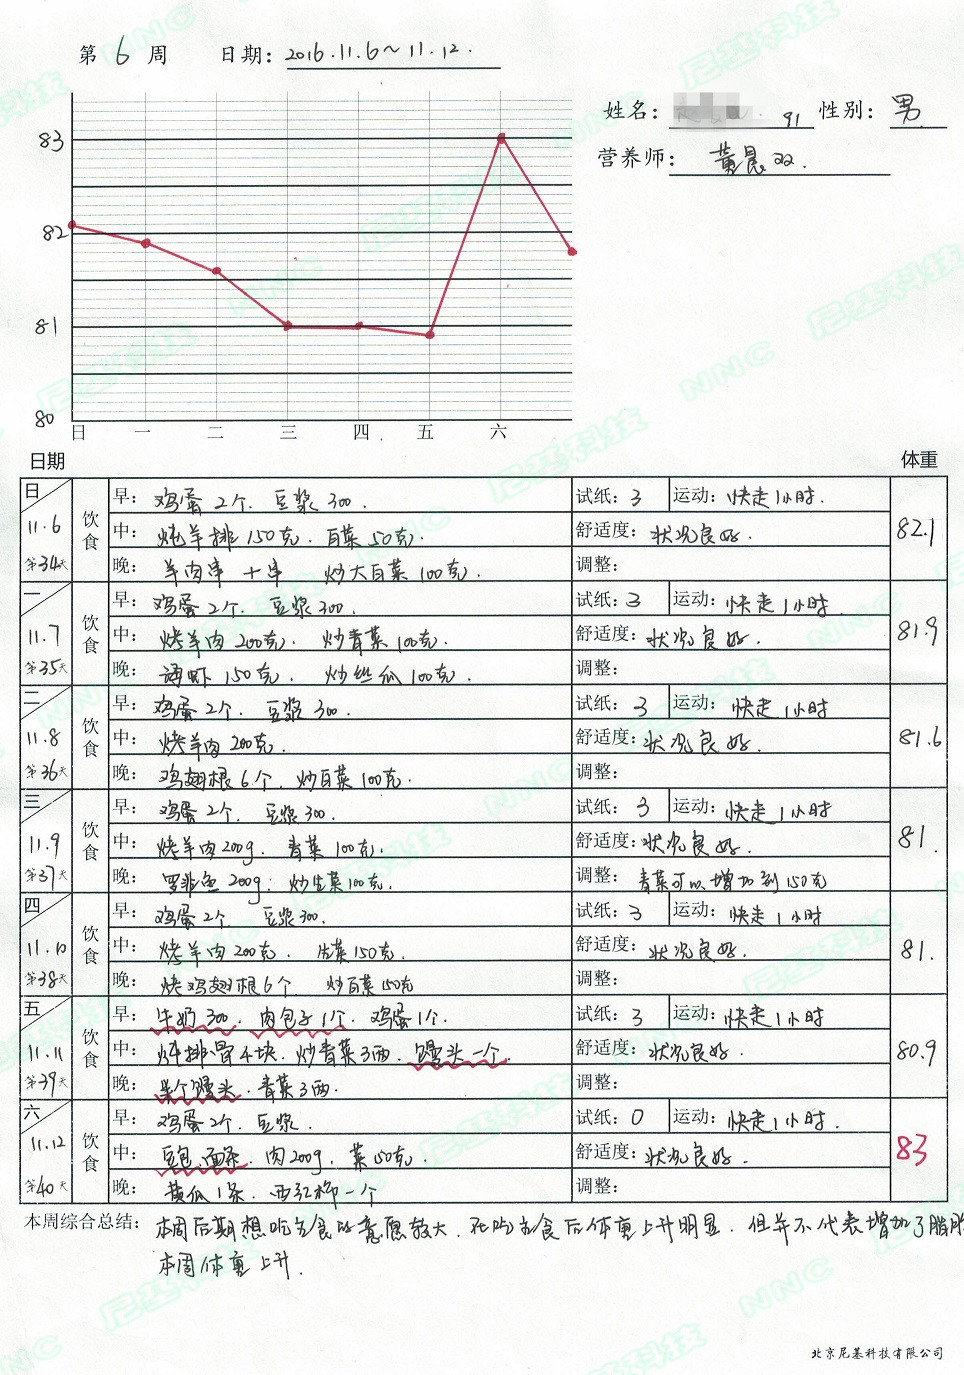 第 6 周 日期: 2016.11.6～11.12.
姓名: 91 性别: 男
营养师:
83
82
81
80
日 一 二 三 四 五 六
日期 体重
日 11.6 第34天 饮食 82.1
早: 鸡蛋2个. 豆浆300. 试纸: 3 运动: 快走1小时.
中: 炖羊排150克. 白菜50克. 舒适度: 状况良好.
晚: 羊肉串十串 炒大白菜100克. 调整:
一 11.7 第35天 饮食 81.9
早: 鸡蛋2个. 豆浆300. 试纸: 3 运动: 快走1小时.
中: 烤羊肉200克. 炒青菜100克. 舒适度: 状况良好.
晚: 虾150克. 炒丝瓜100克. 调整:
二 11.8 第36天 饮食 81.6
早: 鸡蛋2个. 豆浆300. 试纸: 3 运动: 快走1小时
中: 烤羊肉200克. 舒适度: 状况良好.
晚: 鸡翅根6个. 炒白菜100克. 调整:
三 11.9 第37天 饮食 81.
早: 鸡蛋2个. 豆浆300. 试纸: 3 运动: 快走1小时
中: 烤羊肉200g. 青菜100克. 舒适度: 状况良好.
晚: 罗非鱼200g; 炒生菜100克. 调整: 青菜可以增加到150克
四 11.10 第38天 饮食 81.
早: 鸡蛋2个 豆浆300. 试纸: 3 运动: 快走1小时
中: 烤羊肉200克. 生菜150克. 舒适度: 状况良好.
晚: 烤鸡翅根6个. 炒白菜150克 调整:
五 11.11 第39天 饮食 80.9
早: 牛奶300. 肉包子1个. 鸡蛋1个. 试纸: 3 运动: 快走1小时
中: 炖排骨4块. 炒青菜3两. 馒头一个. 舒适度: 状况良好.
晚: 半个馒头. 青菜3两. 调整:
六 11.12 第40天 饮食 83
早: 鸡蛋2个. 豆浆. 试纸: 0 运动: 快走1小时.
中: 豆包. 面条. 肉200g. 菜50克. 舒适度: 状况良好.
晚: 黄瓜1条. 西红柿一个 调整:
本周综合总结: 本周后期想吃主食的意愿放大. 在吃主食后体重上升明显. 但并不代表增加了脂肪
本周体重上升.
北京尼基科技有限公司
尼基科技 NNC